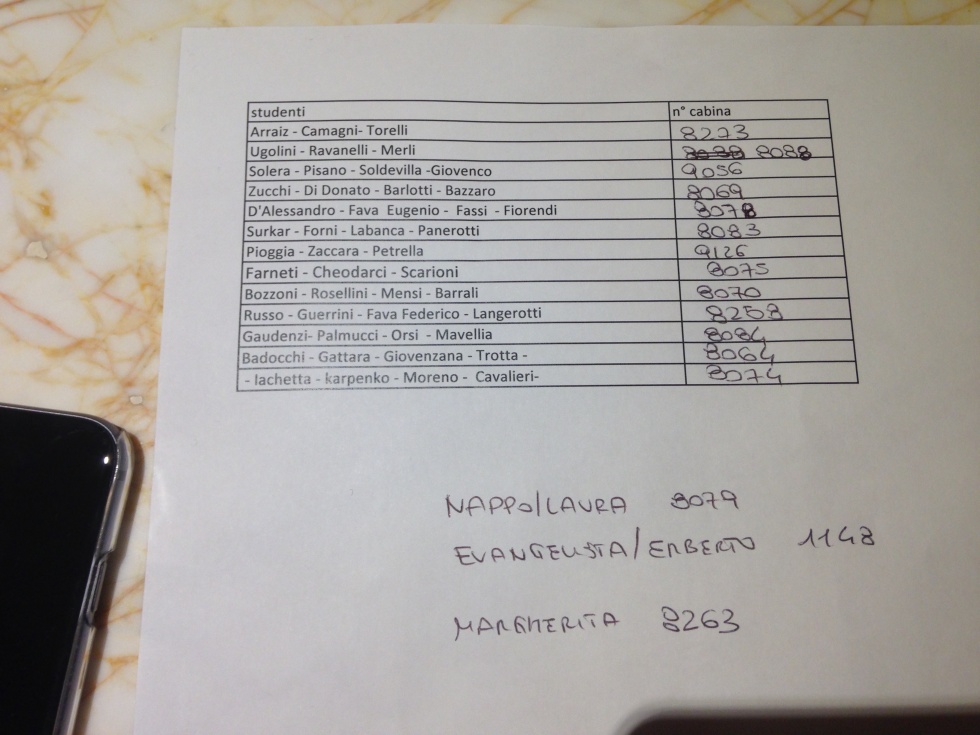 studenti n° cabina
Arraiz - Camagni- Torelli 8273
Ugolini - Ravanelli - Merli 8088
Solera - Pisano - Soldevilla -Giovenco 9056
Zucchi - Di Donato - Barlotti - Bazzaro 8069
D'Alessandro - Fava Eugenio - Fassi - Fiorendi 8078
Surkar - Forni - Labanca - Panerotti 8083
Pioggia - Zaccara - Petrella 9126
Farneti - Cheodarci - Scarioni 8075
Bozzoni - Rosellini - Mensi - Barrali 8070
Russo - Guerrini - Fava Federico - Langerotti 8258
Gaudenzi- Palmucci - Orsi - Mavellia 8084
Badocchi - Gattara - Giovenzana - Trotta - 8064
- Iachetta - karpenko - Moreno - Cavalieri- 8074
NAPPO/LAURA 8079
EVANGELISTA/ERBERTO 1148
MARGHERITA 8263